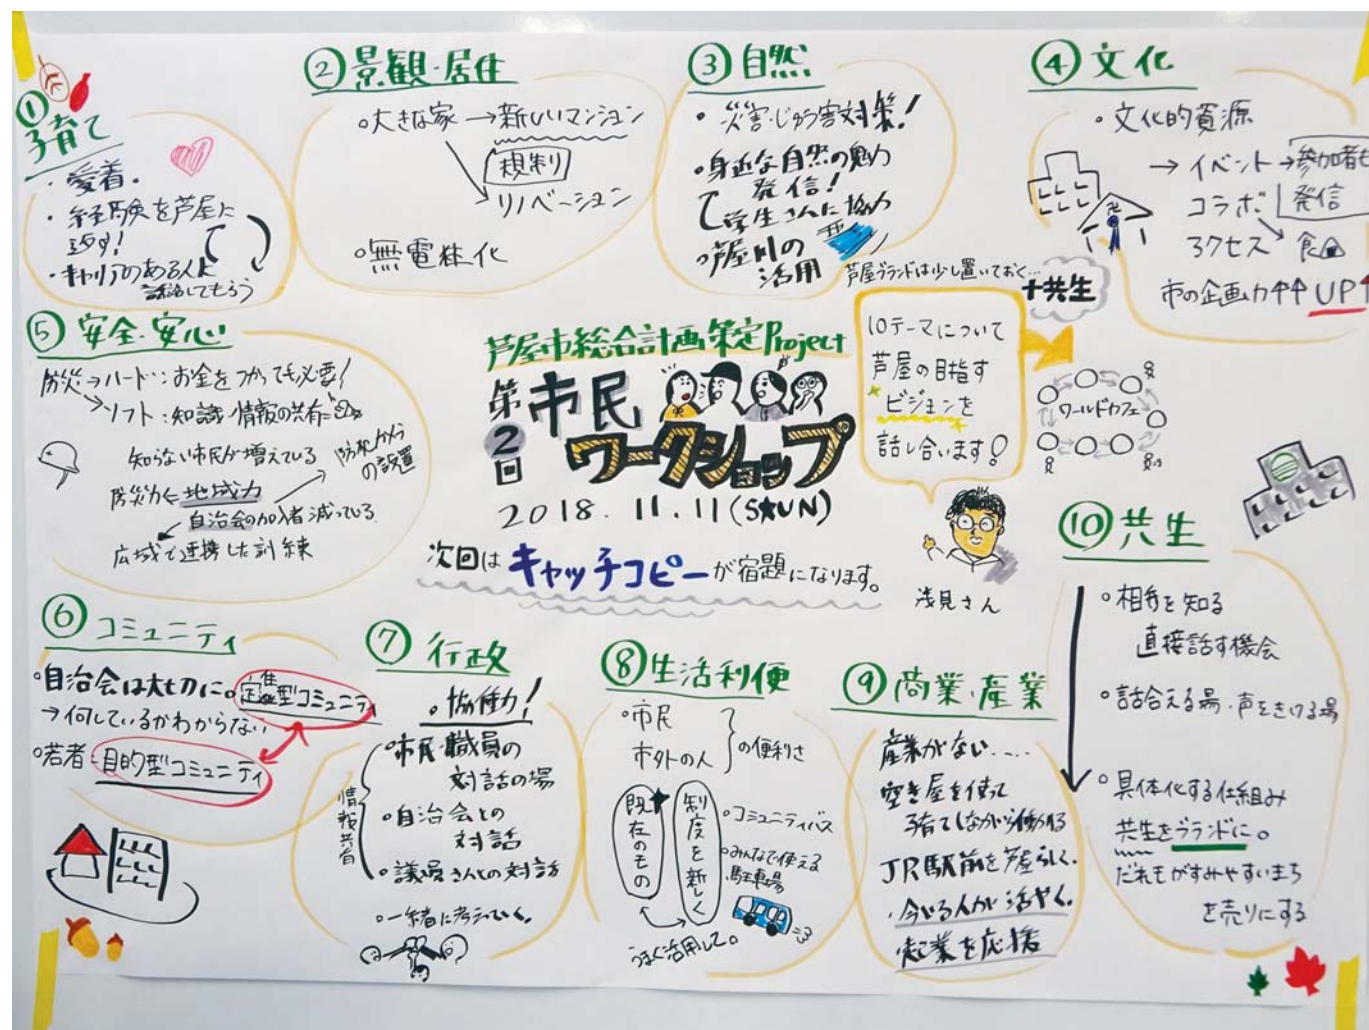 ① 子育て
・愛着。
・経験を芦屋に
返す!
・キャリアのある人に
話してもらう
② 景観・居住
・大きな家→新しいマンション
規制
リノベーション
・無電柱化
③ 自然
・災害・じゅう害対策!
・身近な自然の魅力
発信!
学生さんに協力
・芦屋川の
活用
④ 文化
・文化的資源
→イベント→参加者も
コラボ 発信
アクセス 食
市の企画力↑↑UP↑
⑤ 安全・安心
防災→ハード:お金をつかっても必要!
→ソフト:知識・情報の共有
知らない市民が増えている
防犯カメラ
の設置
防災力←地域力
自治会の加入者減っている
広域で連携した訓練
芦屋市総合計画策定Project
第2回
市民
ワークショップ
2018.11.11(SUN)
次回はキャッチコピーが宿題になります。
芦屋ブランドは少し置いておく…
+共生
10テーマについて
芦屋の目指す
ビジョンを
話し合います!
ワールドカフェ
浅見さん
⑥ コミュニティ
・自治会は大切に。
定住型コミュニティ
→何しているかわからない
・若者:目的型コミュニティ
⑦ 行政
・協働力!
・市民・職員の
対話の場
・自治会との
対話
・議員さんとの対話
情報共有
・一緒に考えていく。
⑧ 生活利便
・市民
市外の人
の便利さ
既在のもの
制度を新しく
・コミュニティバス
・みんなで使える
駐車場
うまく活用して。
⑨ 商業・産業
産業がない……
空き屋を使って
子育てしながら働ける
JR駅前を芦屋らしく。
・今いる人が活やく。
・起業を応援
⑩ 共生
・相手を知る
直接話す機会
・話合える場・声をきける場
・具体化する仕組み
共生をブランドに。
だれもがすみやすいまち
を売りにする